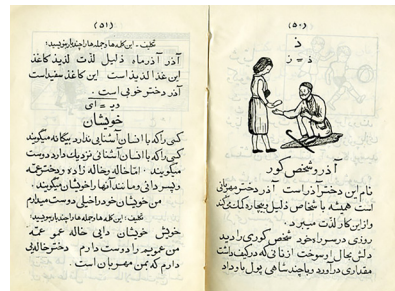 (۵۰)
ذ
ذ = ز
آذر و شخص کور
نام این دختر آذر است. آذر دختر مهربانی
است همیشه با شخاص ذلیل و بیچاره کمک میکند
و از این کار لذت میبرد.
روزی در سر راه خود شخص کوری را دید
دلش بحال او سوخت از نانی که در کیف داشت
مقداری درآورد و با چند شاهی پول باو داد
(۵۱)
تکلیف - این کلمه ها و جمله ها را چند بار بنویسید:
آذر آذرماه ذلیل لذت لذیذ کاغذ
این غذا لذیذ است این کاغذ سفید است
آذر دختر خوبی است.
خویشان
کسی را که با انسان آشنایی ندارد بیگانه میگویند
کسی را که با انسان آشنائی نزدیک دارد دوست
میگویند. اما خاله و خاله زاده و دختر عمه
و پسر دائی و مانند آنها را خویشان میگویند
من خویشان خود را خیلی دوست میدارم
تکلیف - این کلمه ها و جمله ها را چند بار بنویسید:
خویش خویشان دایی خاله عمو عمه
من عمویم را دوست دارم دختر خاله یی
دارم که بمن مهربان است